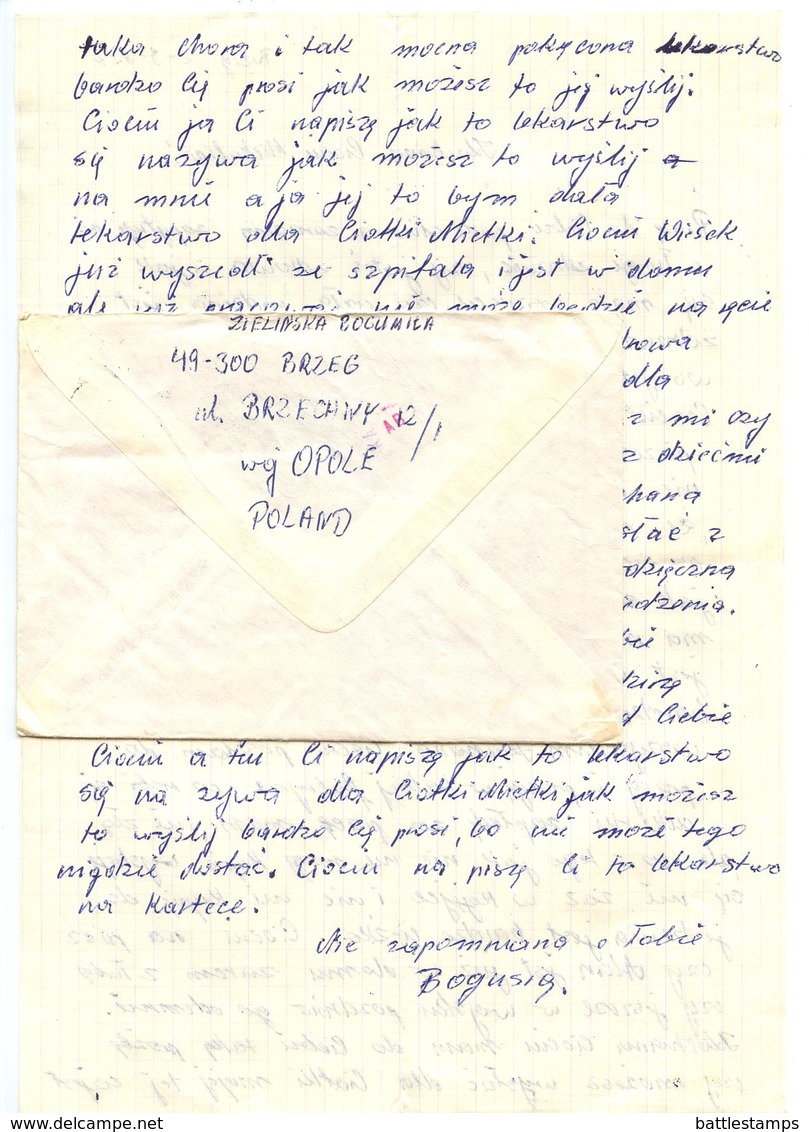 taka chora i tak mocna pokręcona lekarstwo
bardzo Cię prosi jak możesz to jej wyślij.
Ciociu ja Ci napiszę jak to lekarstwo
się nazywa jak możesz to wyślij a
na mnie a ja jej to bym dała
lekarstwo dla Ciotki Mietki. Ciociu Wiesek
już wyszedł ze szpitala i jest w domu
ale już pracować nie może będzie na ręcie
ZIELIŃSKA BOGUMIŁA
49-300 BRZEG
ul. BRZECHWY 12/1
woj OPOLE
POLAND
AB
dla
z mi czy
z dziećmi
chana
stać z
dzięczna
dzenia.
bie
dzinę
d Ciebie
Ciociu a tu Ci napiszę jak to lekarstwo
się na zywa dla Ciotki Mietki jak możesz
to wyślij bardzo Cię prosi, bo nie może tego
nigdzie dostać. Ciociu na piszę Ci to lekarstwo
na Kartece.
Nie zapomniana o Tobie
Bogusia.
delcampe.net
battlestamps